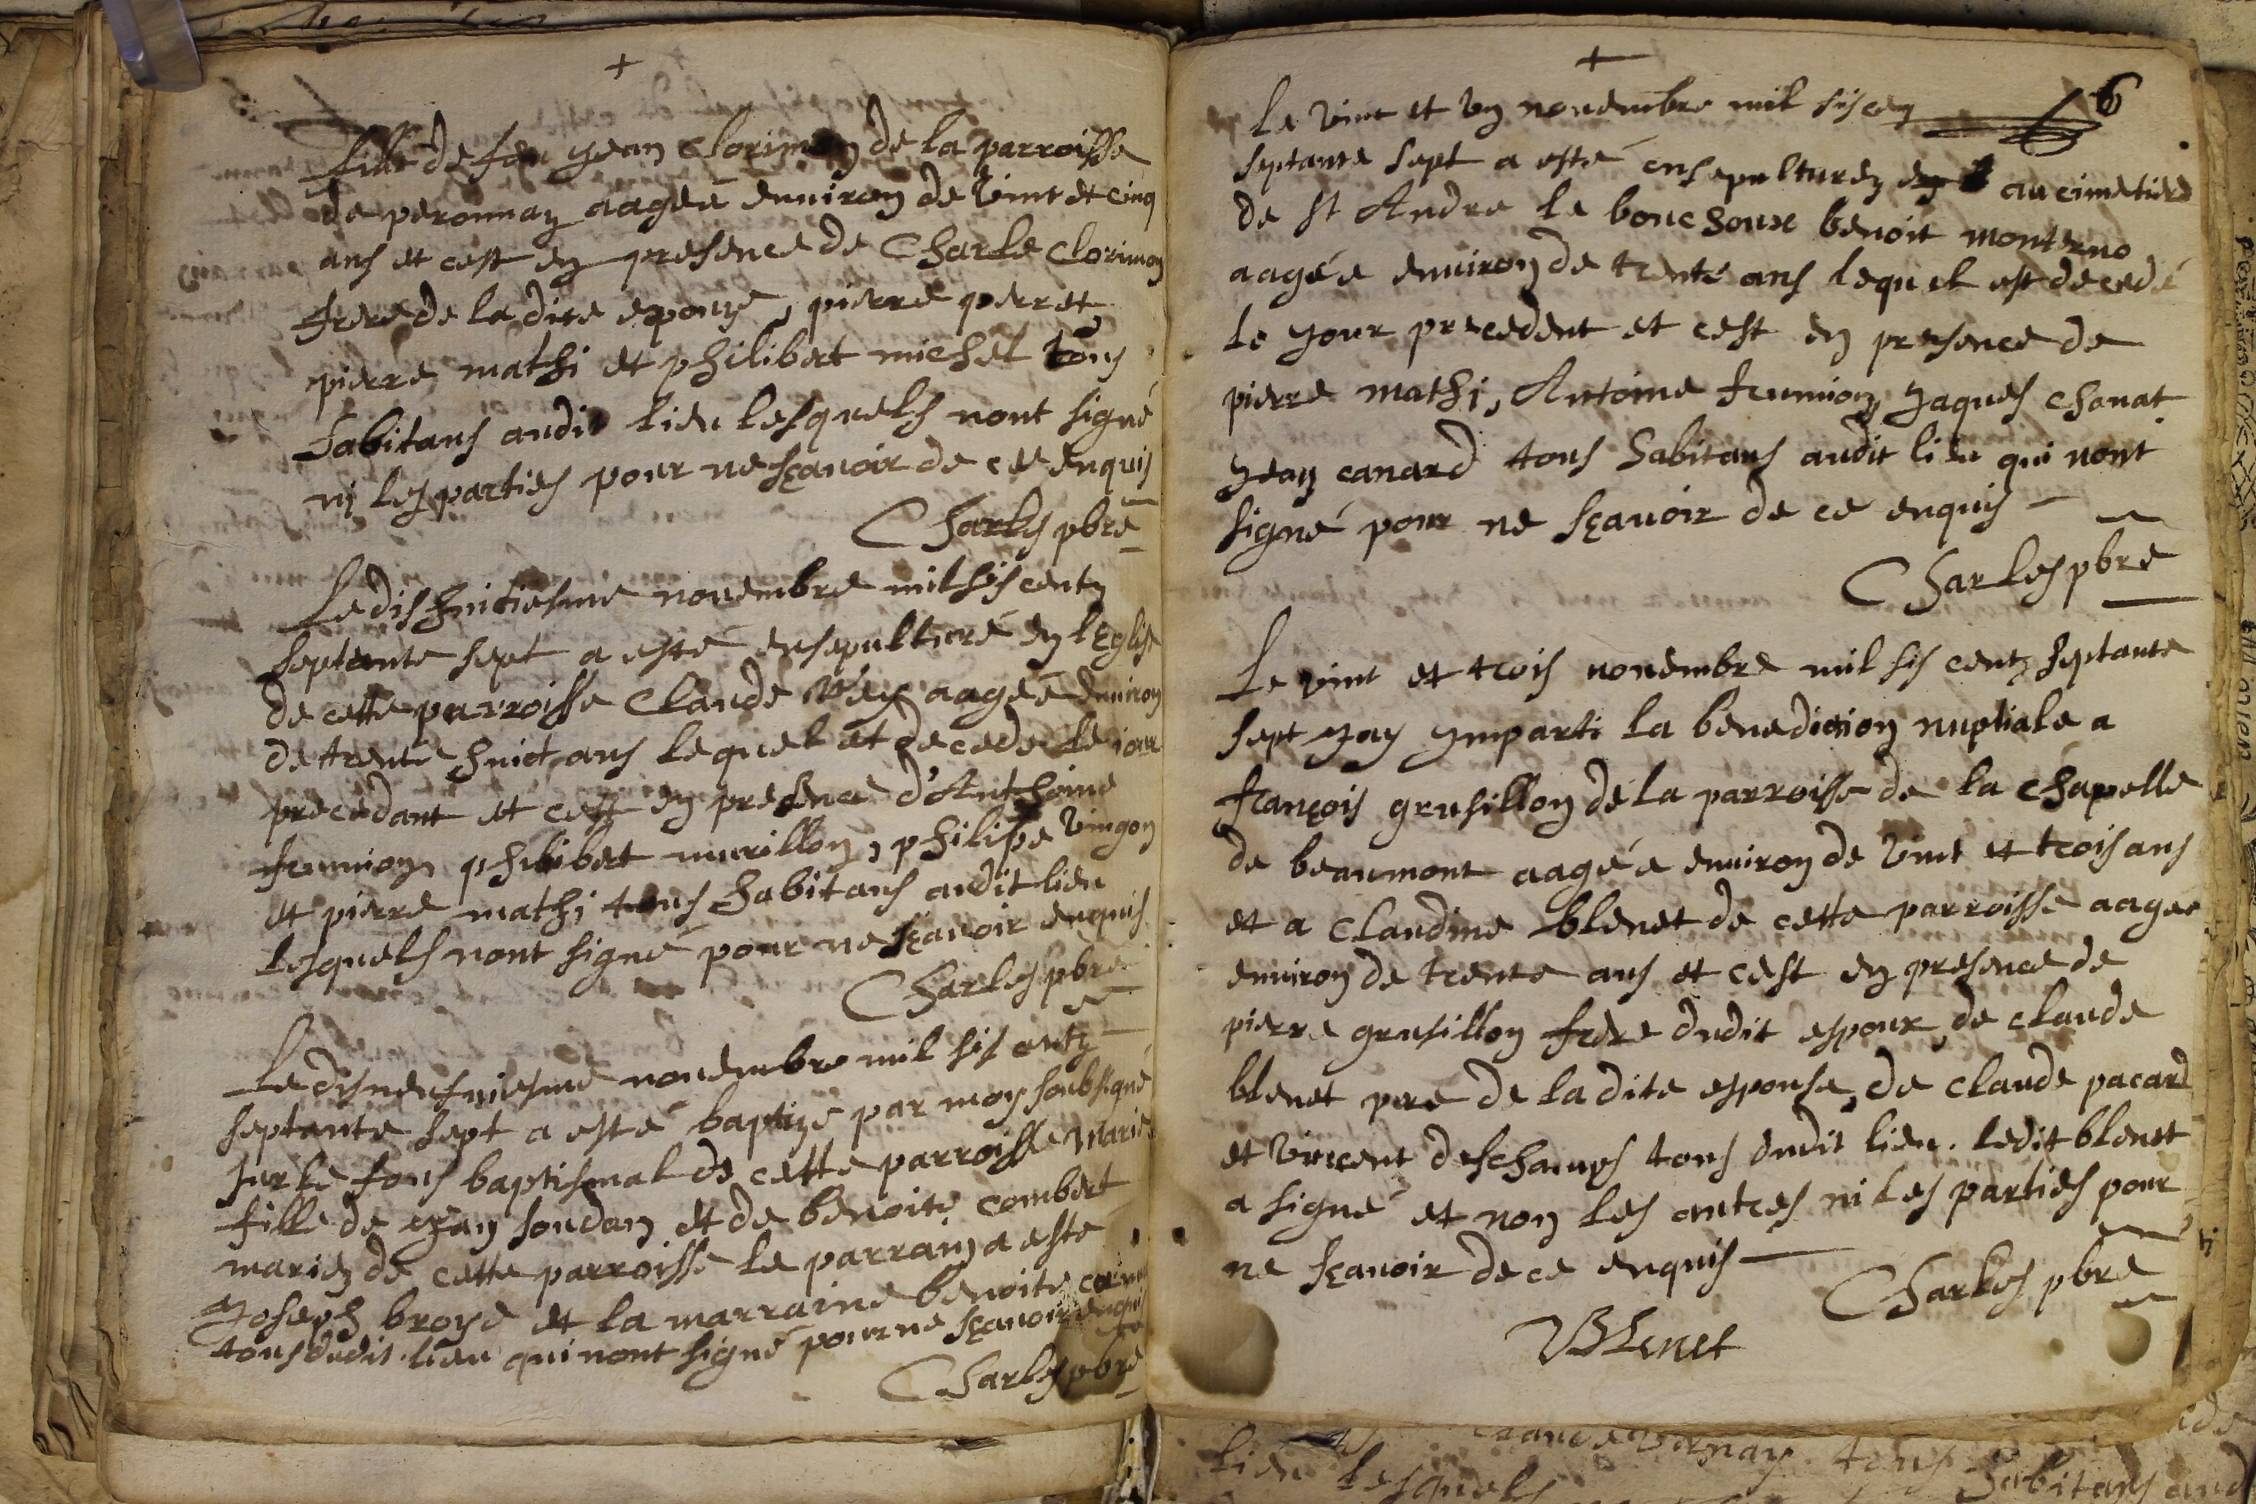 +
fille de feu yean Clorimon de la parroisse
de peronnaz aagée environ de vint et cinq
ans et cest en presence de Charle Clorimon
frere de la dite epouse, pierre perret,
pierre mathi et philibert michel tous
habitans audit lieu lesquels nont signé
ni les parties pour ne sçavoir de ce enquis
Charles pbre
Le dis huitiesme novembre mil sis centz
septante sept a esté ensepulturé en l'Eglise
de cette parroisse Claude aagée environ
de trente huict ans lequel et decedé le iour
precedant et cest en presence d'Anthoine
frunnion, philibert murillon, philipe vingon
et pierre mathi tous habitans audit lieu
lesquels nont signé pour ne sçavoir enquis
Charles pbre
Le disneufviesme novembre mil sis centz
septante sept a esté baptizé par moy soubsigné
sur le fons baptismal de cette parroisse Marie
fille de yean soudan et de benoite combert
mariez de cette parroisse le parrain a esté
yoseph broye et la marraine benoite
tous dudit lieu qui nont signé pour ne sçavoir enquis
Charles pbre
+
6
Le vint et un novembre mil sis cen
septante sept a esté ensepulturez au cimetiere
de st Andre le bouchoux benoit monterno
aagée environ de trente ans lequel est decedé
le your precedent et cest en presence de
pierre mathi, Antoine frunnion, yaques chanat
yean canard tous habitans audit lieu qui nont
signé pour ne sçavoir de ce enquis
Charles pbre
Le vint et trois novembre mil sis centz septante
sept yay ymparti la benediction nuptiale a
françois grusillon de la parroisse de la chapelle
de beaumont aagée environ de vint et trois ans
et a claudine blenet de cette parroisse aagee
environ de trente ans et cest en presence de
pierre grusillon frere dudit espoux, de claude
blenet pere de la dite espouse, de claude pacard
et vincent deschamps tous dudit lieu. ledit blenet
a signé et non les autres ni les parties pour
ne sçavoir de ce enquis
Charles pbre
Blenet
tous
lieu lesquels habitans aud